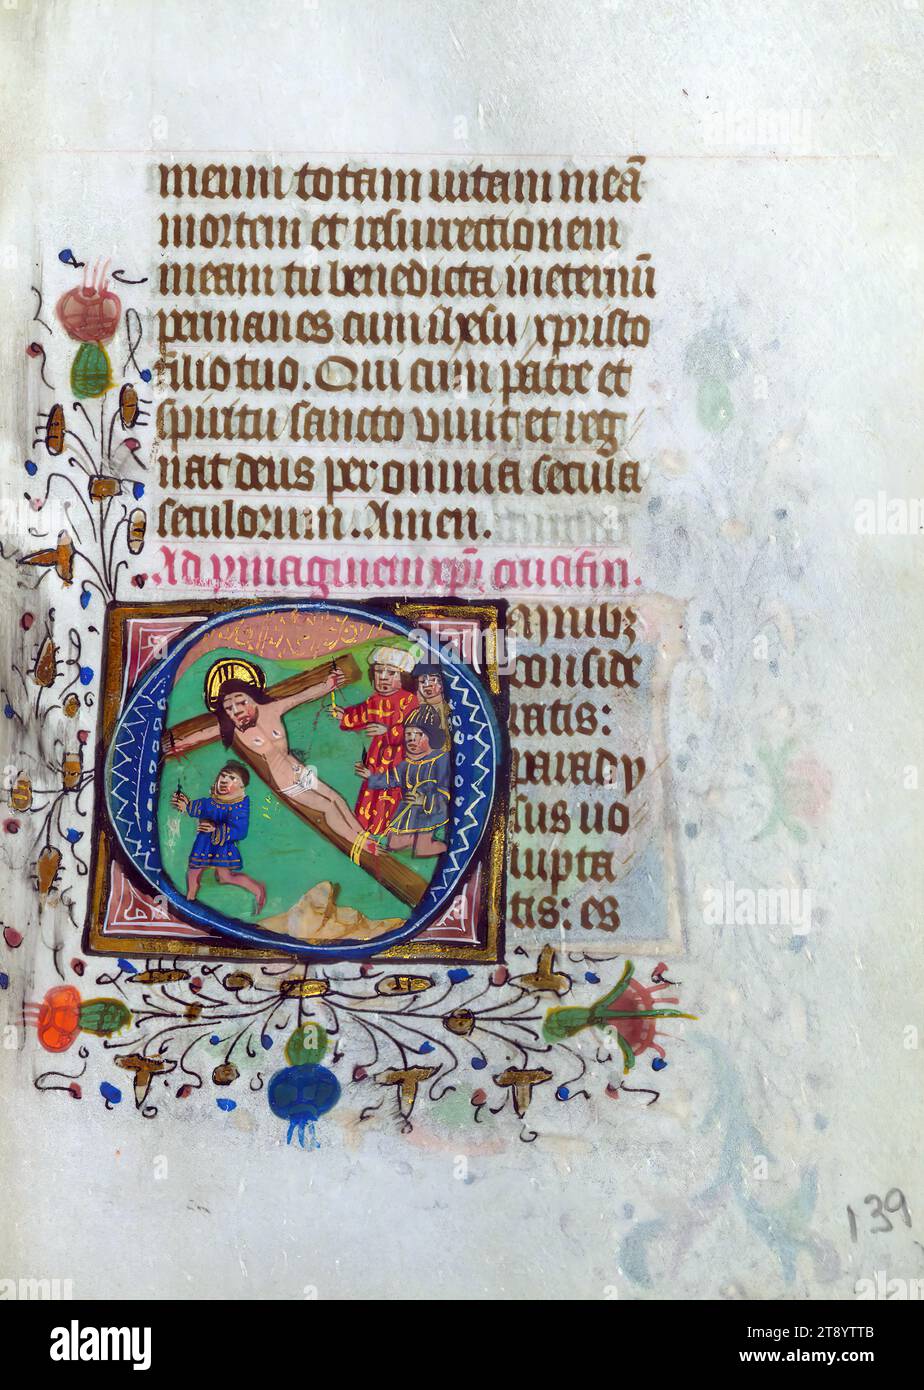 meum totam uitam meā
mortem et resurrectionem
meam tu benedicta ineternū
permanes cum ihesu xpristo
filio tuo. Qui cum patre et
spiritu sancto viuit et reg
nat deus per omnia secula
seculorum. Amen.
Ad ymaginem xpi crucifixi.
Omnibz
conside
ratis:
parady
sus uo
lupta
tis: es
139
alamy
Image ID: 2T8YTTB
www.alamy.com